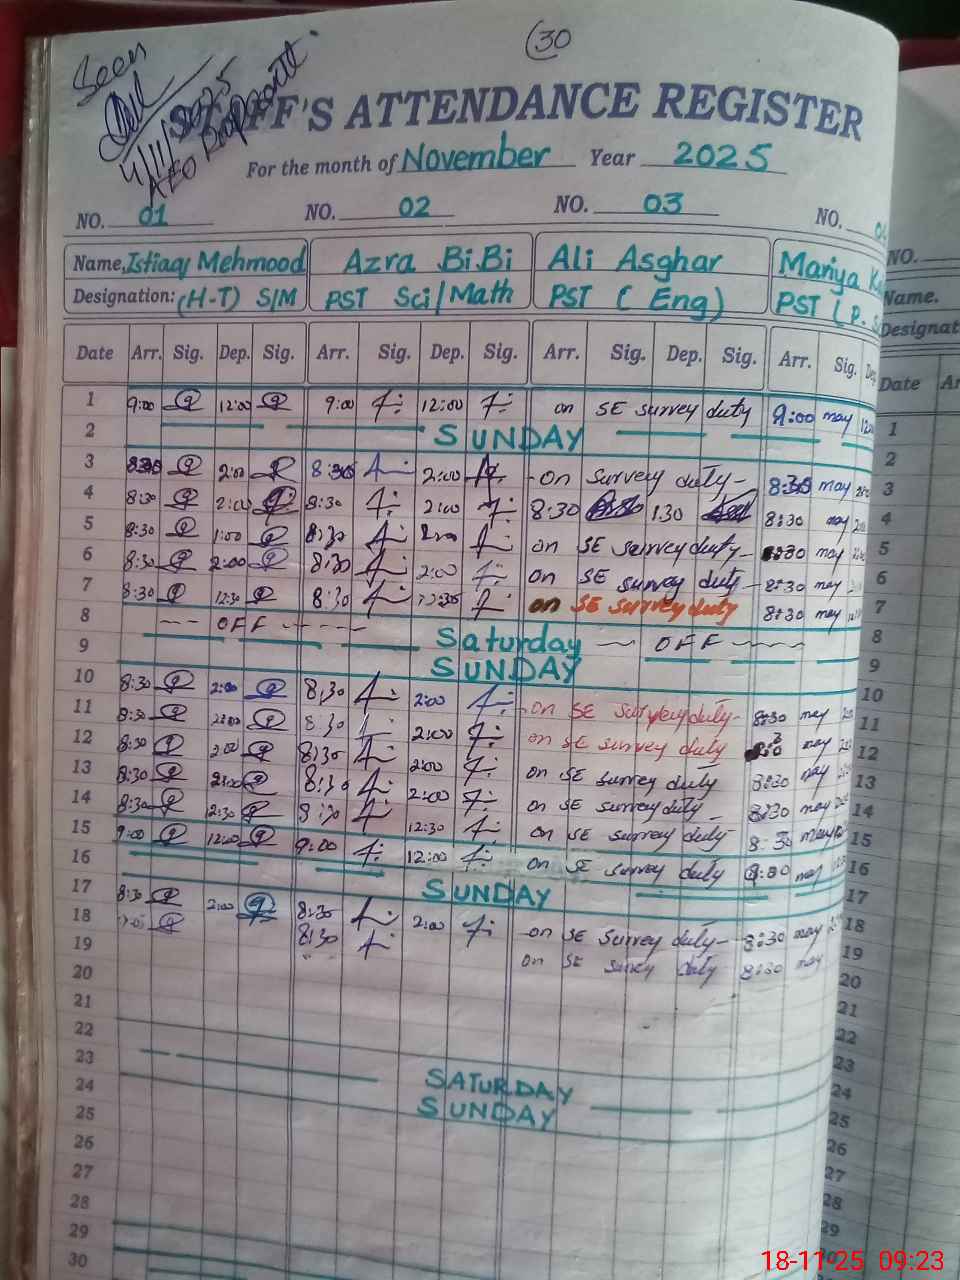 (30
Seen
4/11/2025
AEO
STAFF'S ATTENDANCE REGISTER
For the month of November Year 2025
NO. 01 NO. 02 NO. 03 NO.
Name, Istiaq Mehmood Azra BiBi Ali Asghar Mariya
Designation: (H-T) S/M PST Sci/Math PST (Eng) PST (P.
Date Arr. Sig. Dep. Sig. Arr. Sig. Dep. Sig. Arr. Sig. Dep. Sig. Arr. Sig. Dep
1 9:00 12:00 9:00 12:00 on SE survey duty 9:00 may
2 SUNDAY
3 8:30 2:00 8:30 2:00 -on survey duty- 8:30 may
4 8:30 2:00 8:30 2:00 8:30 1:30 8:30 may
5 8:30 1:00 8:30 2:00 on SE survey duty- 8:30 may
6 8:30 2:00 8:30 2:00 on SE survey duty- 8:30 may
7 8:30 12:30 8:30 on SE survey duty 8:30 may
8 OFF Saturday OFF
9 SUNDAY
10 8:30 2:00 8:30 2:00 -on SE survey duty- 8:30 may
11 8:30 2:00 8:30 2:00 on SE survey duty 8:30 may
12 8:30 2:00 8:30 2:00 on SE survey duty 8:30 may
13 8:30 2:00 8:30 2:00 on SE survey duty 8:30 may
14 8:30 12:30 8:30 12:30 on SE survey duty 8:30 may
15 9:00 12:00 9:00 12:00 on SE survey duty 9:00 may
16 SUNDAY
17 8:30 2:00 8:30 2:00 -on SE survey duty- 8:30 may
18 8:30 on SE survey duty 8:30 may
19
20
21
22 SATURDAY
23 SUNDAY
24
25
26
27
28
29
30
NO.
Name.
Designat
Date Ar
1
2
3
4
5
6
7
8
9
10
11
12
13
14
15
16
17
18
19
20
21
22
23
24
25
26
27
28
29
18-11-25 09:23